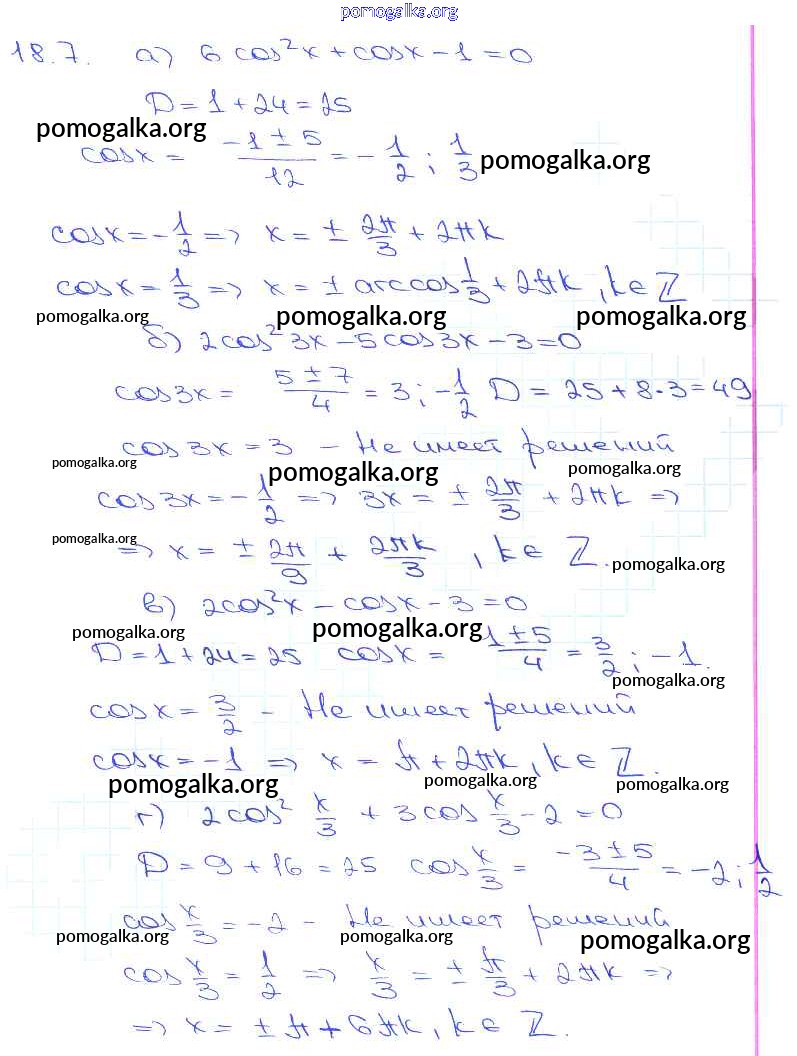 pomogalka.org
18.7. а) 6 cos²x + cosx − 1 = 0
D = 1 + 24 = 25
pomogalka.org
cosx = (−1 ± 5)/12 = −1/2 ; 1/3 pomogalka.org
cosx = −1/2 => x = ± 2π/3 + 2πk
cosx = 1/3 => x = ± arccos 1/3 + 2πk, k ∈ Z
pomogalka.org pomogalka.org pomogalka.org
б) 2cos²3x − 5cos3x − 3 = 0
cos3x = (5 ± 7)/4 = 3 ; −1/2 D = 25 + 8·3 = 49
cos3x = 3 – Не имеет решений
pomogalka.org pomogalka.org pomogalka.org
cos3x = −1/2 => 3x = ± 2π/3 + 2πk =>
pomogalka.org
=> x = ± 2π/9 + 2πk/3 , k ∈ Z.
pomogalka.org
в) 2cos²x − cosx − 3 = 0
pomogalka.org pomogalka.org
D = 1 + 24 = 25 cosx = (1 ± 5)/4 = 3/2 ; −1.
pomogalka.org
cosx = 3/2 – Не имеет решений
cosx = −1 => x = π + 2πk, k ∈ Z.
pomogalka.org pomogalka.org pomogalka.org
г) 2cos² x/3 + 3cos x/3 − 2 = 0
D = 9 + 16 = 25 cos x/3 = (−3 ± 5)/4 = −2 ; 1/2
cos x/3 = −2 – Не имеет решений
pomogalka.org pomogalka.org pomogalka.org
cos x/3 = 1/2 => x/3 = ± π/3 + 2πk =>
=> x = ± π + 6πk, k ∈ Z.